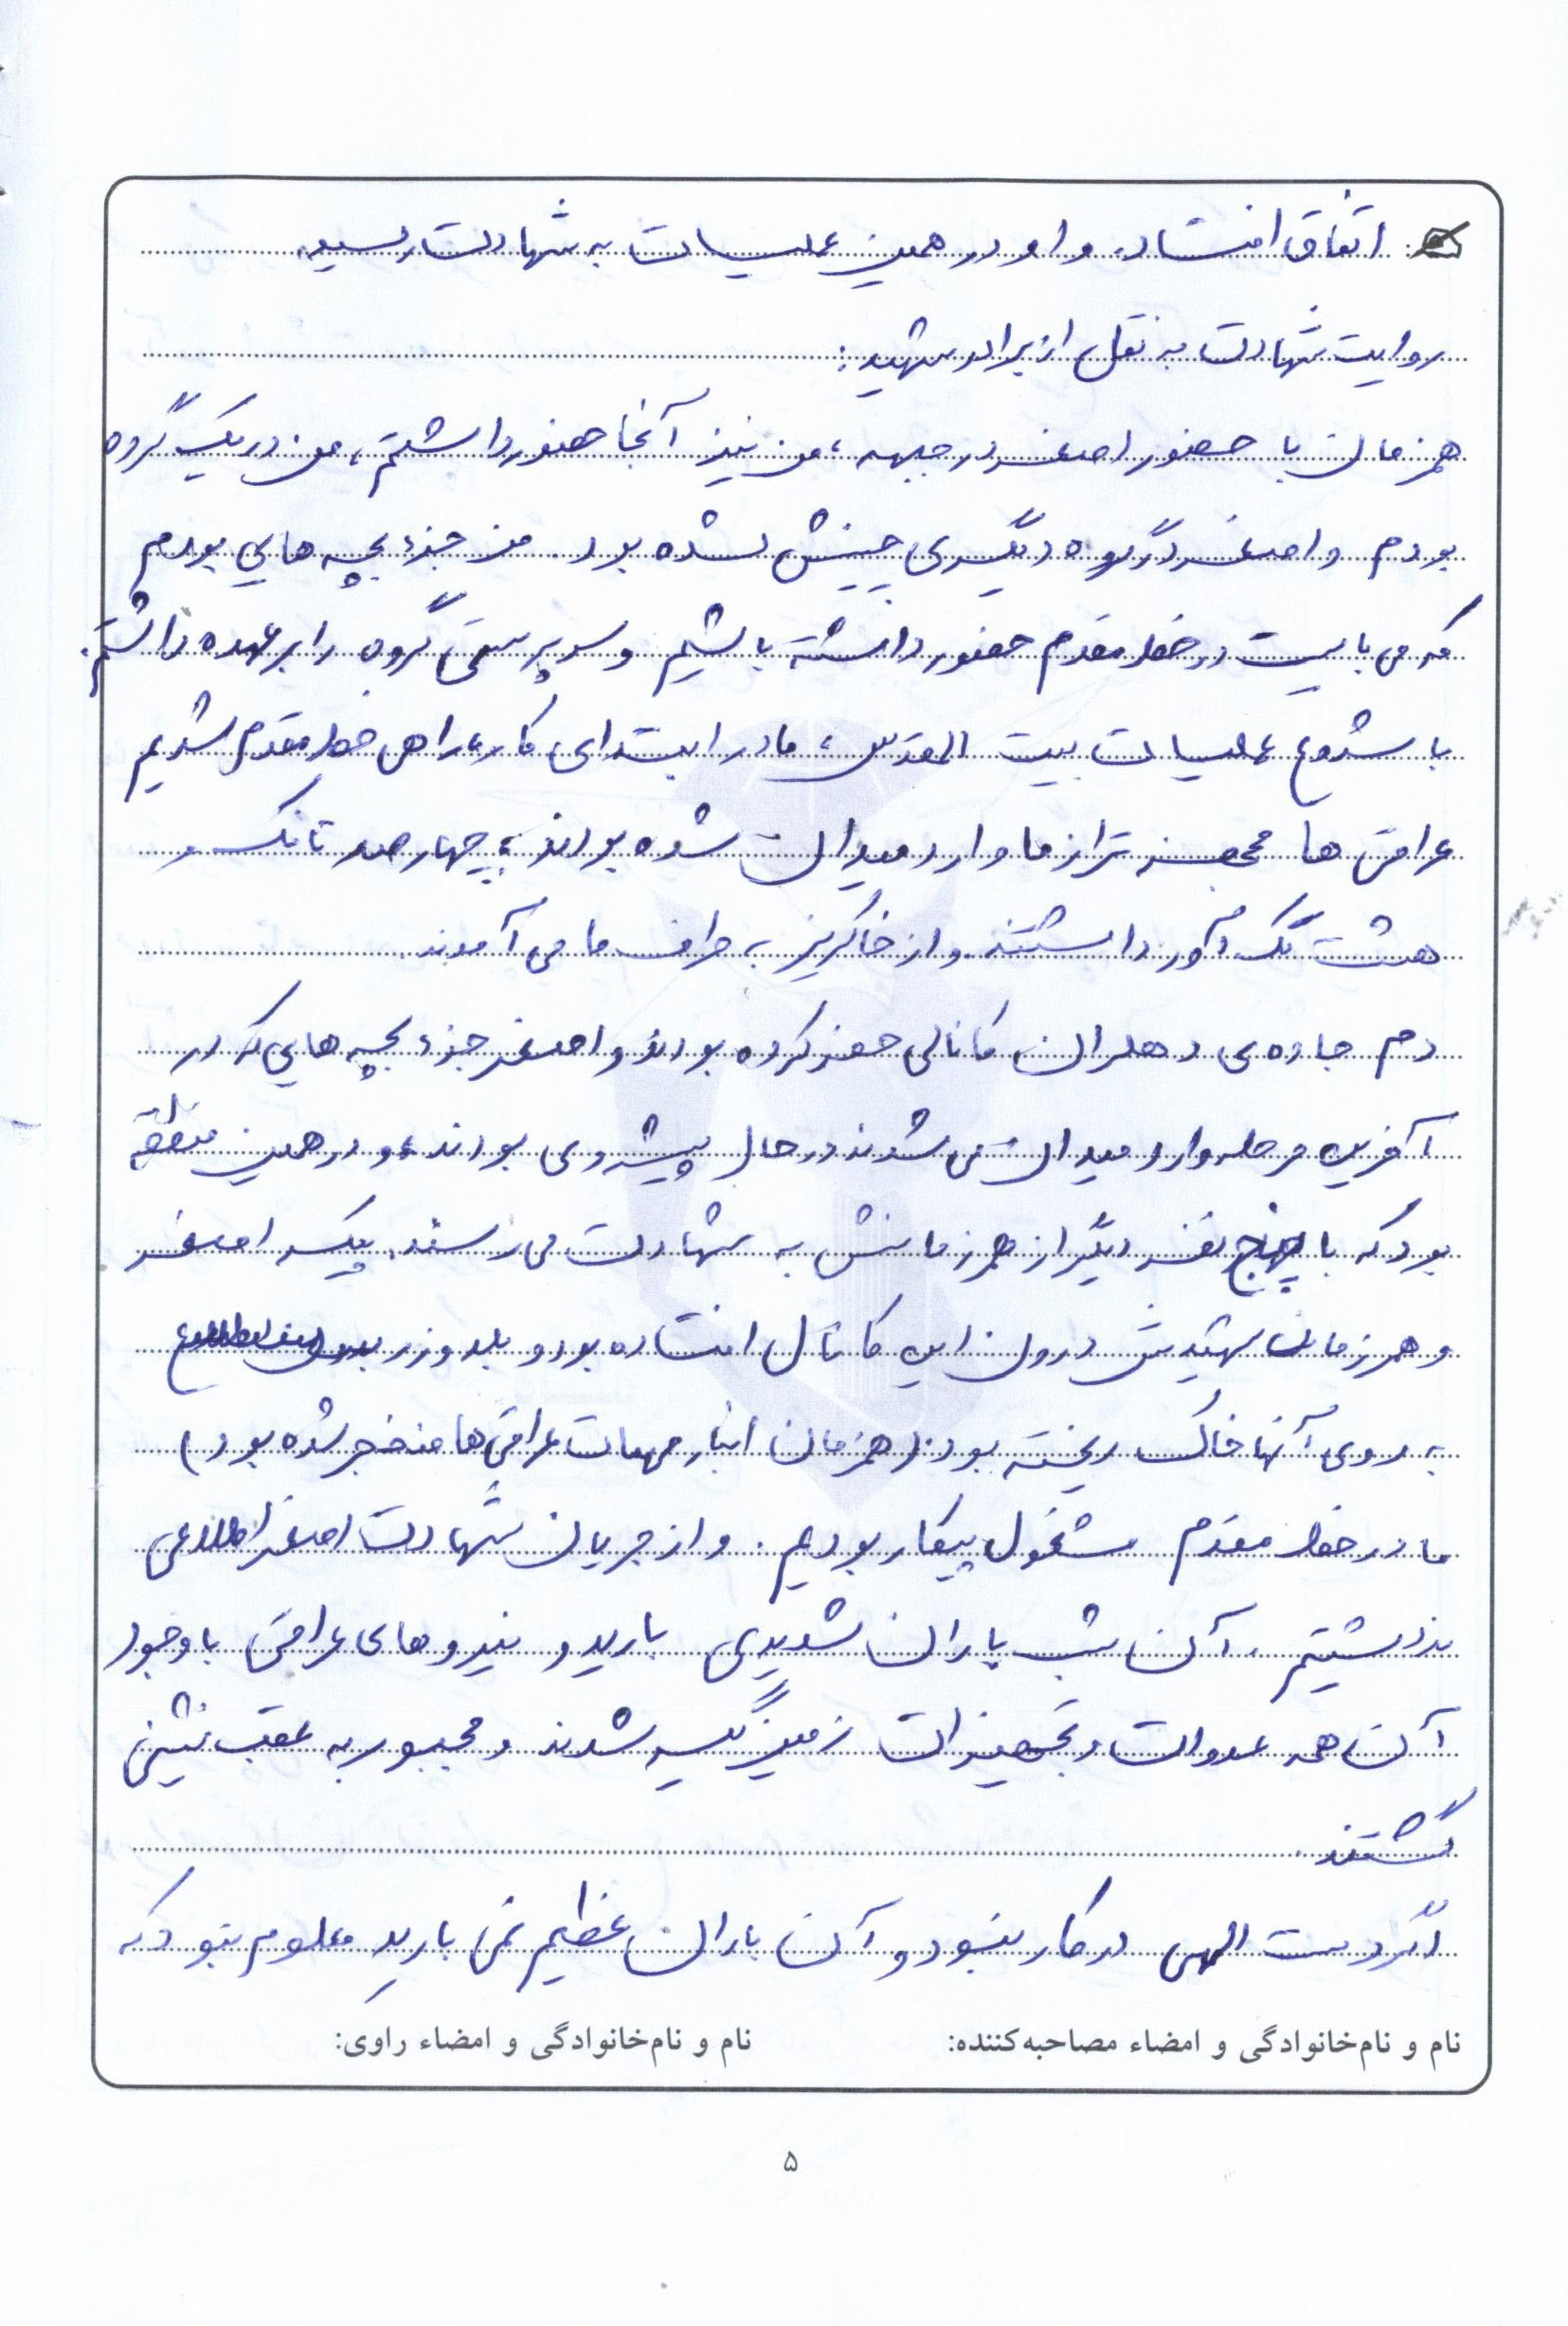 اتفاق افتاد. و او در همین عملیات به شهادت رسید.
روایت شهادت به نقل از برادر شهید:
همزمان با حضور اصغر در جبهه، من نیز آنجا حضور داشتم، من در یک گروه
بودم و اصغر در گروه دیگری چینش شده بود. من جزء بچه هایی بودم
که می بایست در خط مقدم حضور داشته باشیم و سرپرستی گروه را برعهده داشتم.
با شروع عملیات بیت المقدس، ما در ابتدای کار، راهی خط مقدم شدیم
عراقی ها مجهز تر از ما وارد میدان شده بودند، چهارصد تانک و
هشت تک آور داشتند و از خاکریز به طرف ما می آمدند.
دم جاده ی دهلران کانالی حفر کرده بودند و اصغر جزء بچه هایی که در
آخرین مرحله وارد میدان می شدند در حال پیشروی بودند، و در همین منطقه
بود که با پنج نفر دیگر از همرزمانش به شهادت می رسند. پیکر اصغر
و همرزمان شهیدش درون این کانال افتاده بود و بلدوزر بدون اطلاع
به روی آنها خاک ریخته بود. (همزمان انبار مهمات عراقی ها منفجر شده بود)
ما در خط مقدم مشغول پیکار بودیم. و از جریان شهادت اصغر اطلاعی
نداشتیم. آن شب باران شدیدی بارید و نیروهای عراقی با وجود
آن همه ادوات و تجهیزات زمین گیر شدند و مجبور به عقب نشینی
گشتند.
اگر دست الهی در کار نبود و آن باران عظیم نمی بارید معلوم نبود که
نام و نام‌خانوادگی و امضاء مصاحبه‌کننده: نام و نام‌خانوادگی و امضاء راوی:
۵